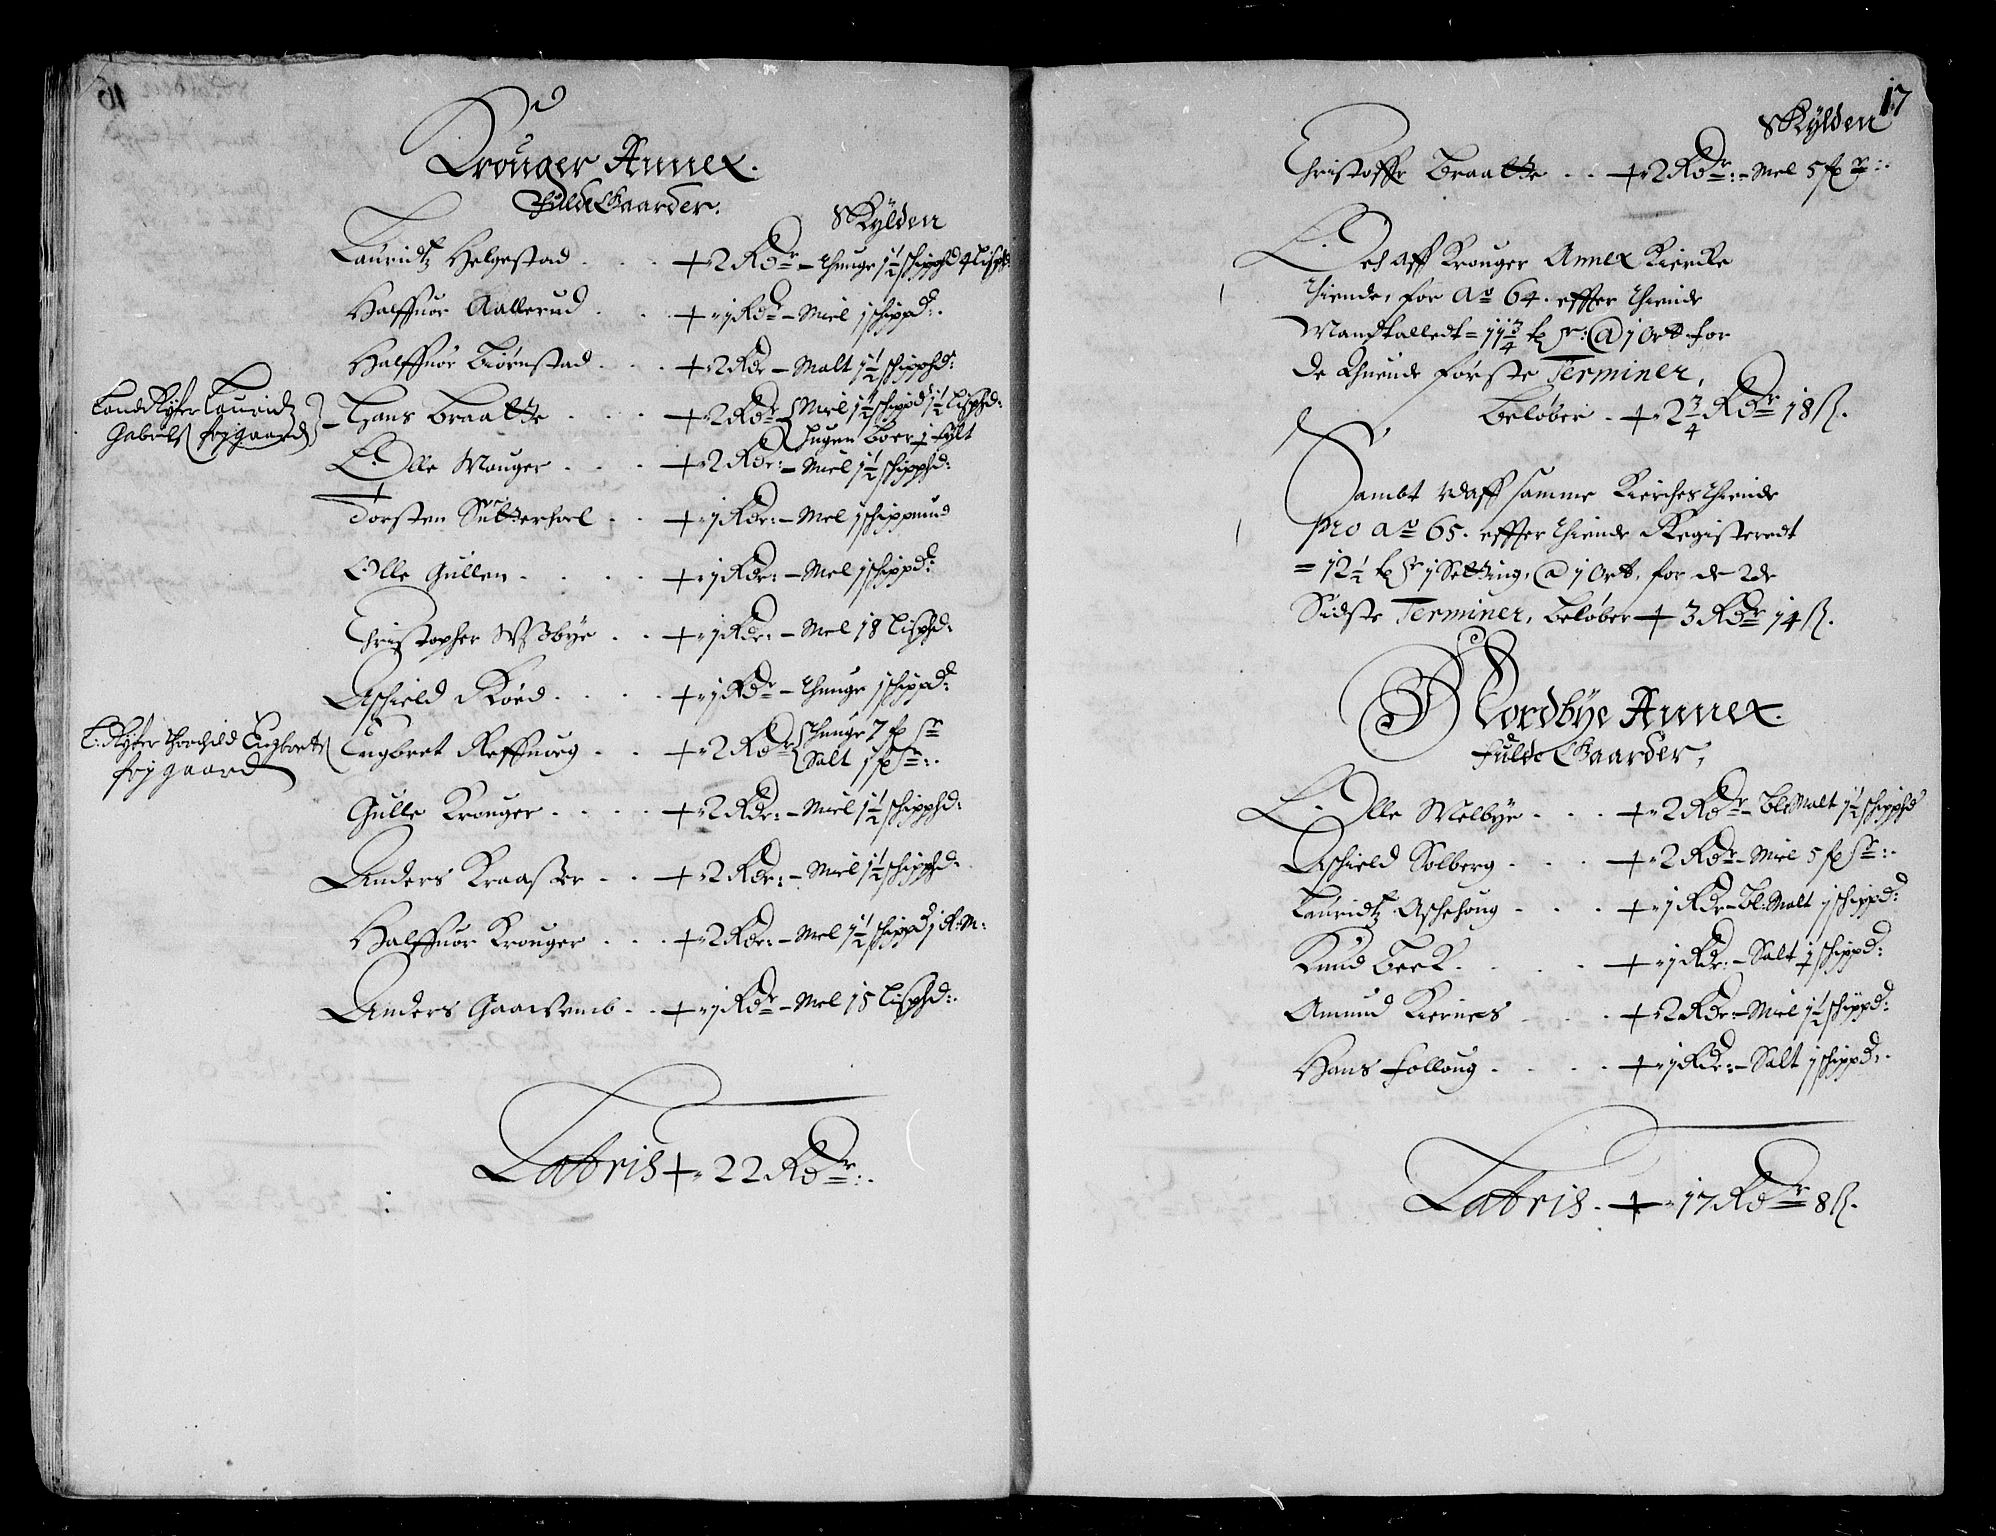 16
Krouger Annex.
Fulde Gaarder.
Skylden
Lauridtz Helgestad . . . + 2 Rdr – Thunge 1½ schippd 4 Lispd:
Halffuor Aallerud . . . + 1 Rdr – Miel 1 schippd:
Halffuor Biørnstad . . . + 2 Rdr – Malt 1½ schipphd:
Landkyter Lauridtz
Gabrielß frj gaard
Hans Braatte . . . + 2 Rdr – Miel 1½ schippd 1½ Lisphd:
Engen Boer 1 fylt
Olle Mouger . . . + 2 Rdr: – Miel 1½ schipphd:
Torsten Sætterhoel . . + 1 Rdr: – Mel 1 schippund
Olle Gullen . . . . + 1 Rdr: – Mel 1 schippd:
Christopher Woebye . . + 1 Rdr: – Mel 18 Lisphd:
Aschield Røed . . . . + 1 Rdr – Thunge 1 schippd:
L: Ryter Torchild Engbretß
frj gaard
Engbret Reffnerg . . + 2 Rdr Thunge 7 fr
Salt 1
Gulle Krouger . . . . + 2 Rdr: – Miel 1½ schipphd:
Anders Kraaster . . + 2 Rdr: – Miel 1½ schipphd:
Halffuor Krouger . . . + 2 Rdr: – Mel 1½ schippd 1 f: M:
Anders Gaarsemb . . + 1 Rdr – Mel 15 Lisphd:
Latris + 22 Rdr:
17
Skylden
Christoffr Braatte . . + 2 Rdr: – Mel 5
Och aff Krouger Annex Kircke
thiende, for Ao 64. effter thiende
Mandtalledt = 11¾ @ 1 Ort for
de thuende første Terminer,
Beløber . + 2¾ Rdr 18 ß.
Sambt udaff samme Kirches thiende
pro ao 65. effter thiende Registeredt
= 12½ 1 Setting, @ 1 Ort, for de 2de
Sidste Terminer, beløber + 3 Rdr 14 ß.
Nordbye Annex.
Fulde Gaarder,
Olle Melbye . . . + 2 Rdr – Bl: Malt 1½ schipphd
Aschield Solberg . . . + 2 Rdr – Miel 5
Lauridtz Aschehoug . . . + 1 Rdr – Bl: Malt 1 schippd:
Knud Beck . . . . + 1 Rdr: – Salt 1 schippd:
Amund Kiernes . . . + 2 Rdr: – Miel 1½ schippd:
Hans Folloug . . . . + 1 Rdr: – Salt 1 schippd:
Latris . + 17 Rdr 8 ß.